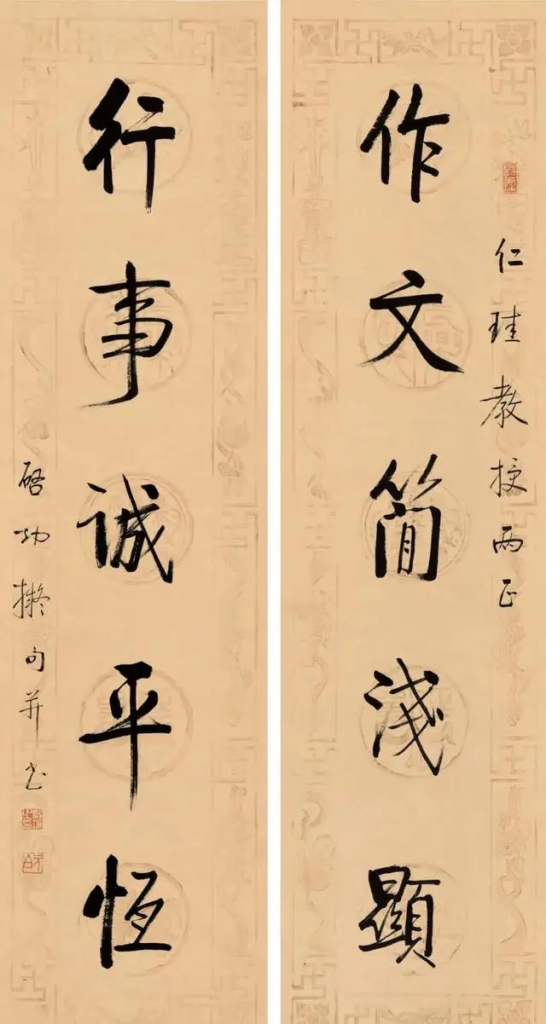 仁珪教授两正
作文简浅顯
行事诚平恒
启功擬句并书